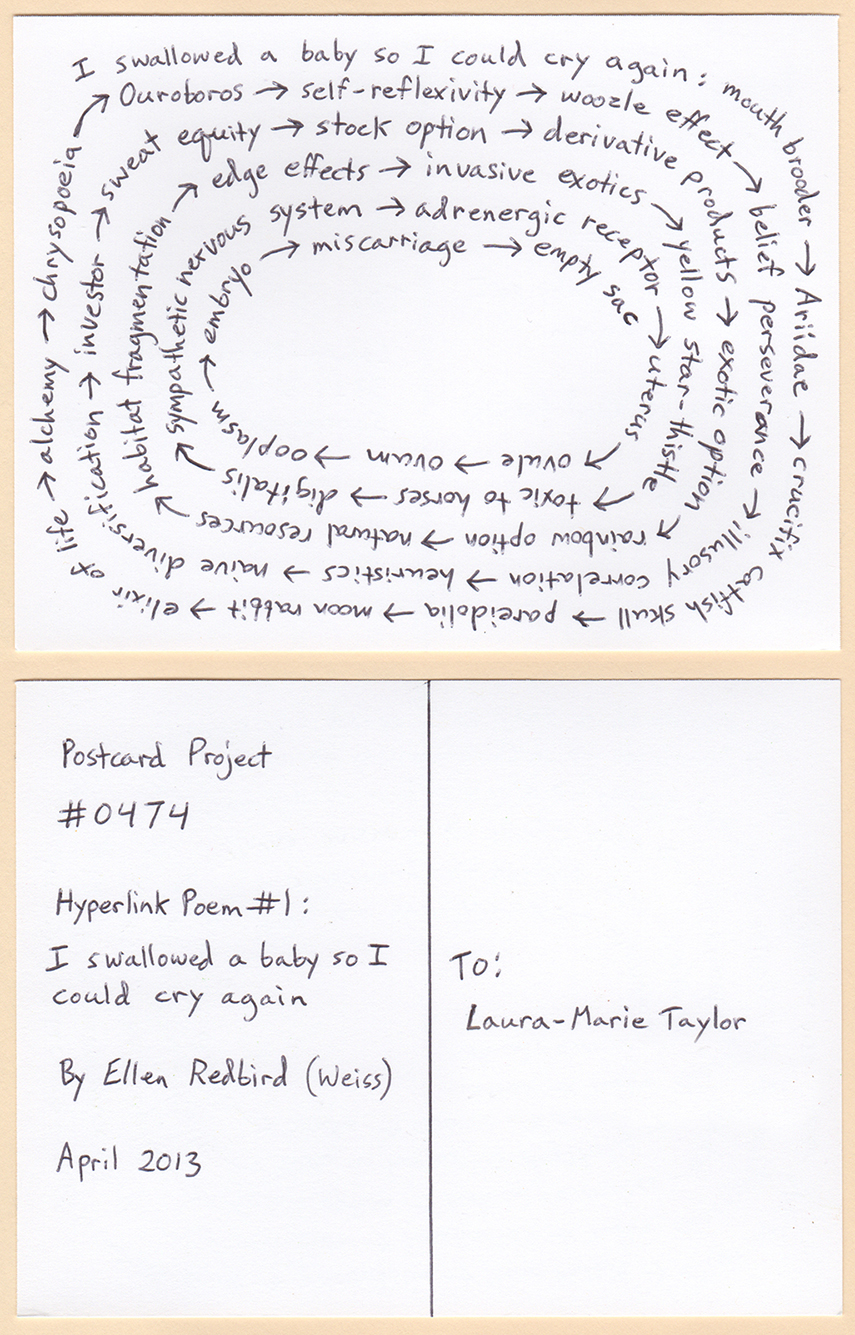 I swallowed a baby so I could cry again: mouth brooder → Ariidae → crucifix catfish skull → pareidolia → moon rabbit → elixir of life → alchemy → chrysopoeia →
Ouroboros → self-reflexivity → woozle effect → belief perseverance → illusory correlation → heuristics → naive diversification → investor →
sweat equity → stock option → derivative products → exotic option → rainbow option → natural resources → habitat fragmentation →
edge effects → invasive exotics → yellow star-thistle → toxic to horses → digitalis →
sympathetic nervous system → adrenergic receptor → uterus → ovule → ovum → ooplasm →
embryo → miscarriage → empty sac
Postcard Project
#0474
Hyperlink Poem #1:
I swallowed a baby so I
could cry again
By Ellen Redbird (Weiss)
April 2013
To:
Laura-Marie Taylor